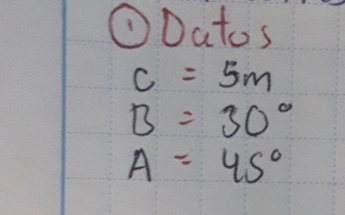 ① Datos
C = 5m
B = 30°
A = 45°